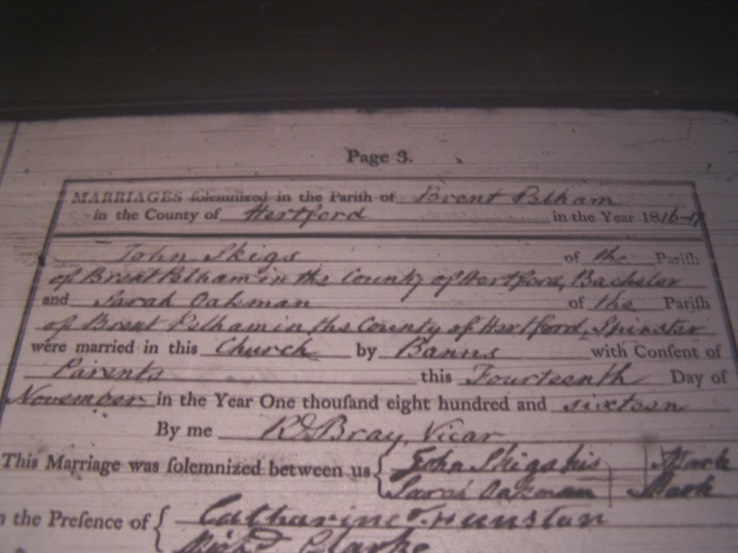 Page 3.
MARRIAGES solemnized in the Parish of Brent Pelham
in the County of Hertford in the Year 1816-17
John Skigs of the Parish
of Brent Pelham in the County of Hertford, Bachelor
and Sarah Oakman of the Parish
of Brent Pelham in the County of Hertford, Spinster
were married in this Church by Banns with Consent of
Parents this Fourteenth Day of
November in the Year One thousand eight hundred and sixteen
By me Rd. Bray, Vicar
This Marriage was solemnized between us { John Skigs his } Mark
Sarah Oakman } Mark
the Presence of { Catharine Hunston
Richd. Clarke